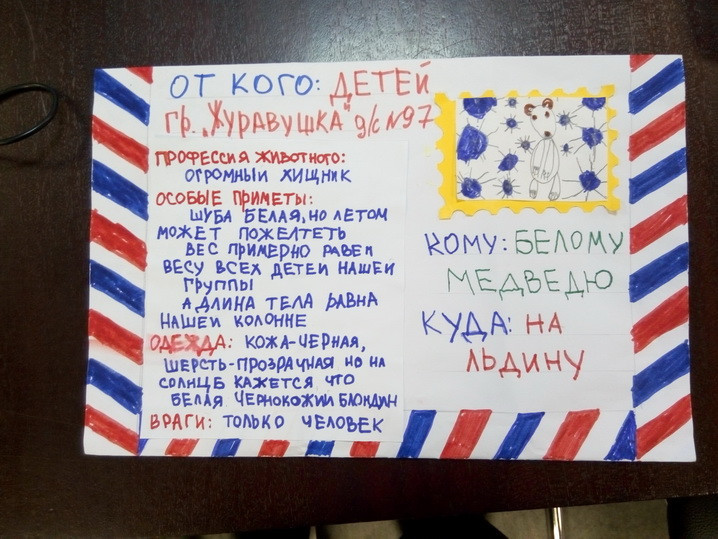 ОТ КОГО: ДЕТЕЙ
гр. „ЖУРАВУШКА" д/с №97
ПРОФЕССИЯ ЖИВОТНОГО:
ОГРОМНЫЙ ХИЩНИК
ОСОБЫЕ ПРИМЕТЫ:
ШУБА БЕЛАЯ, НО ЛЕТОМ
МОЖЕТ ПОЖЕЛТЕТЬ
ВЕС ПРИМЕРНО РАВЕН
ВЕСУ ВСЕХ ДЕТЕЙ НАШЕЙ
ГРУППЫ
А ДЛИНА ТЕЛА РАВНА
НАШЕЙ КОЛОННЕ
ОДЕЖДА: КОЖА-ЧЕРНАЯ,
ШЕРСТЬ-ПРОЗРАЧНАЯ НО НА
СОЛНЦЕ КАЖЕТСЯ ЧТО
БЕЛАЯ. ЧЕРНОКОЖИЙ БЛОНДИН
ВРАГИ: ТОЛЬКО ЧЕЛОВЕК
КОМУ: БЕЛОМУ
МЕДВЕДЮ
КУДА: НА
ЛЬДИНУ